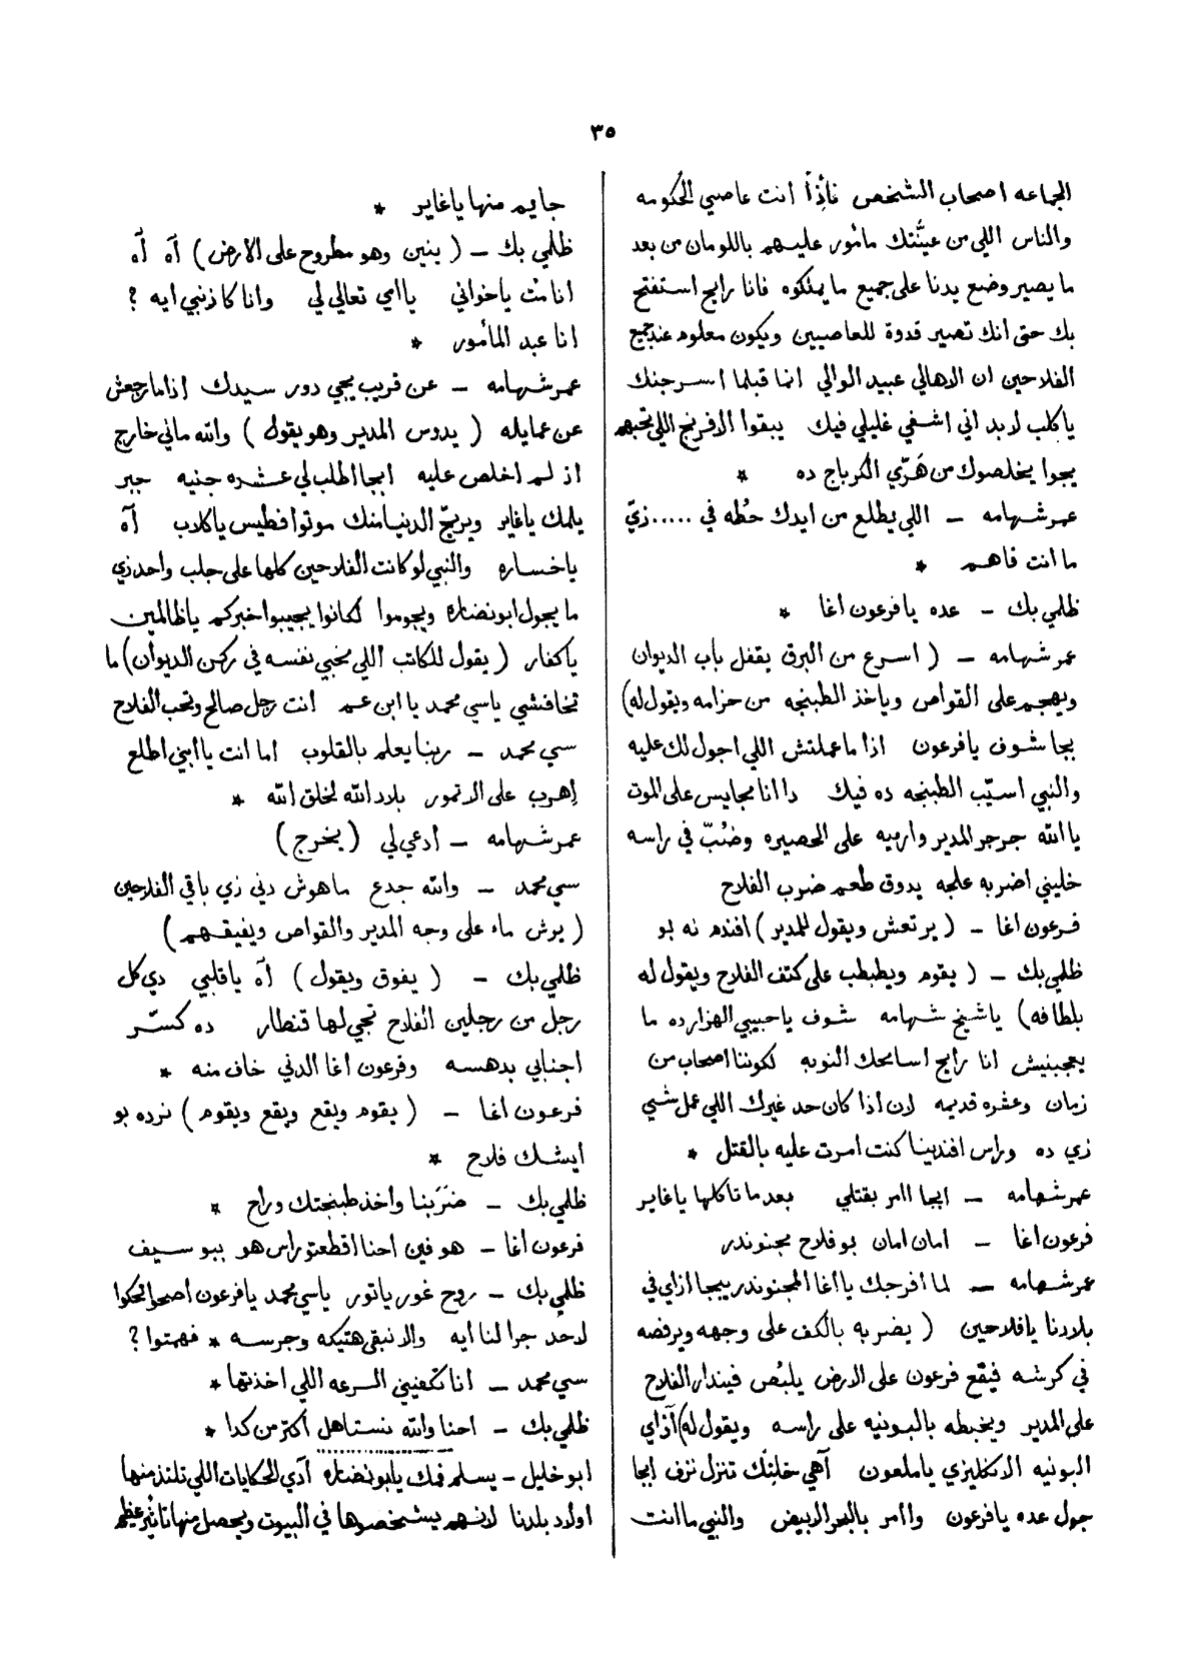 ٣٥
الجماعه اصحاب الشخص فأذاً انت عاصي الحكومه
والناس اللي من عيَّنتك مأمور عليهم باللومان من بعد
ما يصير وضع يدنا على جميع ما يملكوه فانا رايح استفتح
بك حتى انك تصير قدوة للعاصيين ويكون معلوم عند جميع
الفلاحين ان الاهالي عبيد الوالي انما قبلما اسرجنك
يا كلب لابد اني اشفي غليلي فيك يبقوا الافرنج اللي تحبهم
يجوا يخلصوك من هَرّي الكرباج ده *
عمر شهامه – اللي يطلع من ايدك حُطه في ..... زيّ
ما انت فاهم *
ظلمي بك – عده يا فرعون اغا *
عمر شهامه – ( اسرع من البرق يقفل باب الديوان
ويهجم على القواص وياخذ الطبنجه من حزامه ويقول له)
بجا شوف يا فرعون اذا ما عملتش اللي اجول لك عليه
والنبي اسيّب الطبنجه ده فيك دا انا مجايس على الموت
يا الله جرجر المدير وارميه على الحصيره وضُبّ في راسه
خليني اضربه علجه يدوق طعم ضرب الفلاح
فرعون اغا – ( يرتعش ويقول للمدير ) افندم نه بو
ظلمي بك – ( يقوم ويطبطب على كتف الفلاح ويقول له
بلطافه) يا شيخ شهامه شوف يا حبيبي الهزار ده ما
يعجبنيش انا رايح اسامحك النوبه لكوننا اصحاب من
زمان وعشره قديمه لان اذا كان حد غيرك اللي عمل شي
زي ده وراس افندينا كنت امرت عليه بالقتل *
عمر شهامه – ابجا اامر بقتلي بعد ما تاكلها يا غاير
فرعون اغا – امان امان بو فلاح مجنوندر
عمر شهامه – لما افرجك يا اغا المجنوندر يبجا ازاي في
بلادنا يا فلاحين ( يضربه بالكف على وجهه ويرفصه
في كرشه فيقع فرعون على الارض يلبُص فيندار الفلاح
على المدير ويخبطه بالبونيه على راسه ويقول له) آزاي
البونيه الانكليزي يا ملعون آهي خلتِك تنزل نزف ابجا
جول عده يا فرعون واامر بالبحر الابيض والنبي ما انت
جايم منها يا غاير *
ظلمي بك – ( ينين وهو مطروح على الارض ) آه آه
انا مت يا خواني يا امي تعالي لي وانا كان ذنبي ايه ؟
انا عبد المأمور *
عمر شهامه – عن قريب يجي دور سيدك اذا ما رجعش
عن عمايله ( يدوس المدير وهو يقول ) والله ماني خارج
اذ لم اخلص عليه ابجا اطلب لي عشره جنيه جبر
يلمك يا غاير ويريّح الدنيا منك موتوا فطيس يا كلاب آه
يا خساره والنبي لو كانت الفلاحين كلها على جلب واحد زي
ما يجول ابو نضاره ويجوموا لكانوا يجيبوا خبركم يا ظالمين
يا كفار ( يقول للكاتب اللي مخبي نفسه في ركن الديوان) ما
تخافنشي يا سي محمد يا ابن عم انت رجل صالح وتحب الفلاح
سي محمد – ربنا يعلم بالقلوب اما انت يا ابني اطلع
اهرب على الاتمور بلاد الله لخلق الله *
عمر شهامه – أدعي لي ( يخرج )
سي محمد – والله جدع ماهوش دني زي باقي الفلاحين
( يرش ماء على وجه المدير والقواص ويفيقهم )
ظلمي بك – ( يفوق ويقول ) آه يا قلبي دي كل
رجل من رجلين الفلاح تجي لها قنطار ده كسّر
اجنابي بدهسه وفرعون اغا الدني خاف منه *
فرعون أغا – ( يقوم ويقع ويقع ويقوم ) نرده بو
أيشك فلاح *
ظلمي بك – ضرَبنا وأخذ طبنجتك وراح *
فرعون أغا – هو فين احنا اقطعتو راس هو ببو سيف
ظلمي بك – روح غور يا تور يا سي محمد يا فرعون اصحوا تحكوا
لاحد جرا لنا ايه والا نبقى هتيكه وجرسه * فهمتوا ؟
سي محمد – انا تكفيني السرعه اللي اخذتها *
ظلمي بك – احنا والله نستاهل اكتر من كدا *
ابو خليل – يسلم فمك يا بو نضاره آدي الحكايات اللي تلتذ منها
اولاد بلدنا لانهم يشخصوها في البيوت ويحصل منها تأثير عظيم